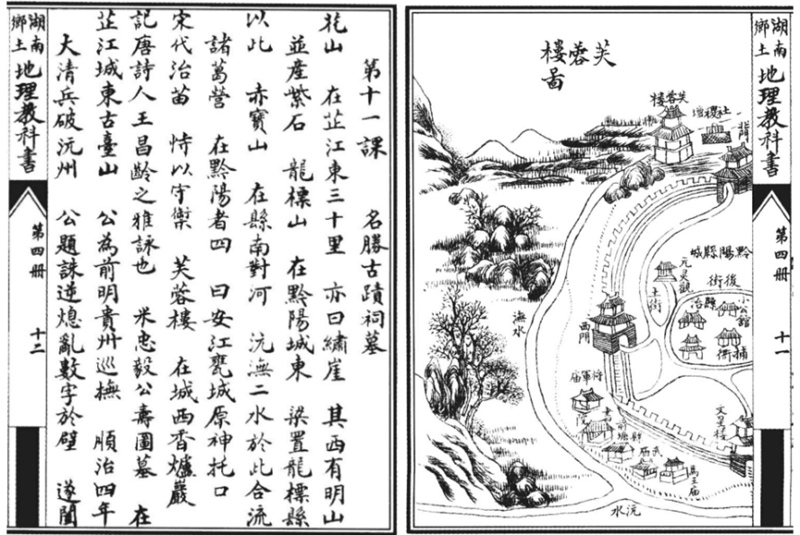 湖南鄉土
地理教科書
第四冊
十一
芙蓉樓啚
芙蓉樓
社稷壇
黔陽縣城
後街
土街
小公館
縣治
捕衙
西門
將軍庙
書院
武庙
沅水
湖南鄉土
地理教科書
第四冊
十二
第十一課 名勝古蹟祠墓
花山 在芷江東三十里 亦曰繡崖 其西有明山
並産紫石 龍標山 在黔陽城東 梁置龍標縣
以此 赤寶山 在縣南對河 沅潕二水於此合流
諸葛營 在黔陽者四 曰安江甕城原神托口
宋代治苗 恃以守禦 芙蓉樓 在城西香爐巖
記唐詩人王昌齡之雅詠也 米忠毅公壽圖墓 在
芷江城東古臺山 公為前明貴州巡撫 順治四年
大清兵破沅州 公題誅逆熄亂數字於壁 遂闔